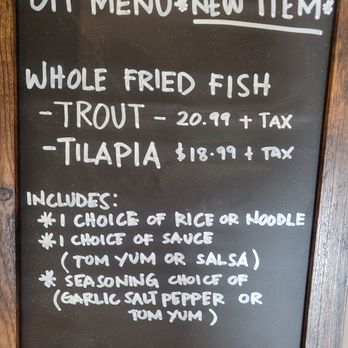 OFF MENU *NEW ITEM*
WHOLE FRIED FISH
- TROUT - 20.99 + TAX
- TILAPIA $18.99 + TAX
INCLUDES:
* 1 CHOICE OF RICE OR NOODLE
* 1 CHOICE OF SAUCE
(TOM YUM OR SALSA)
* SEASONING CHOICE OF
(GARLIC SALT PEPPER OR
TOM YUM)